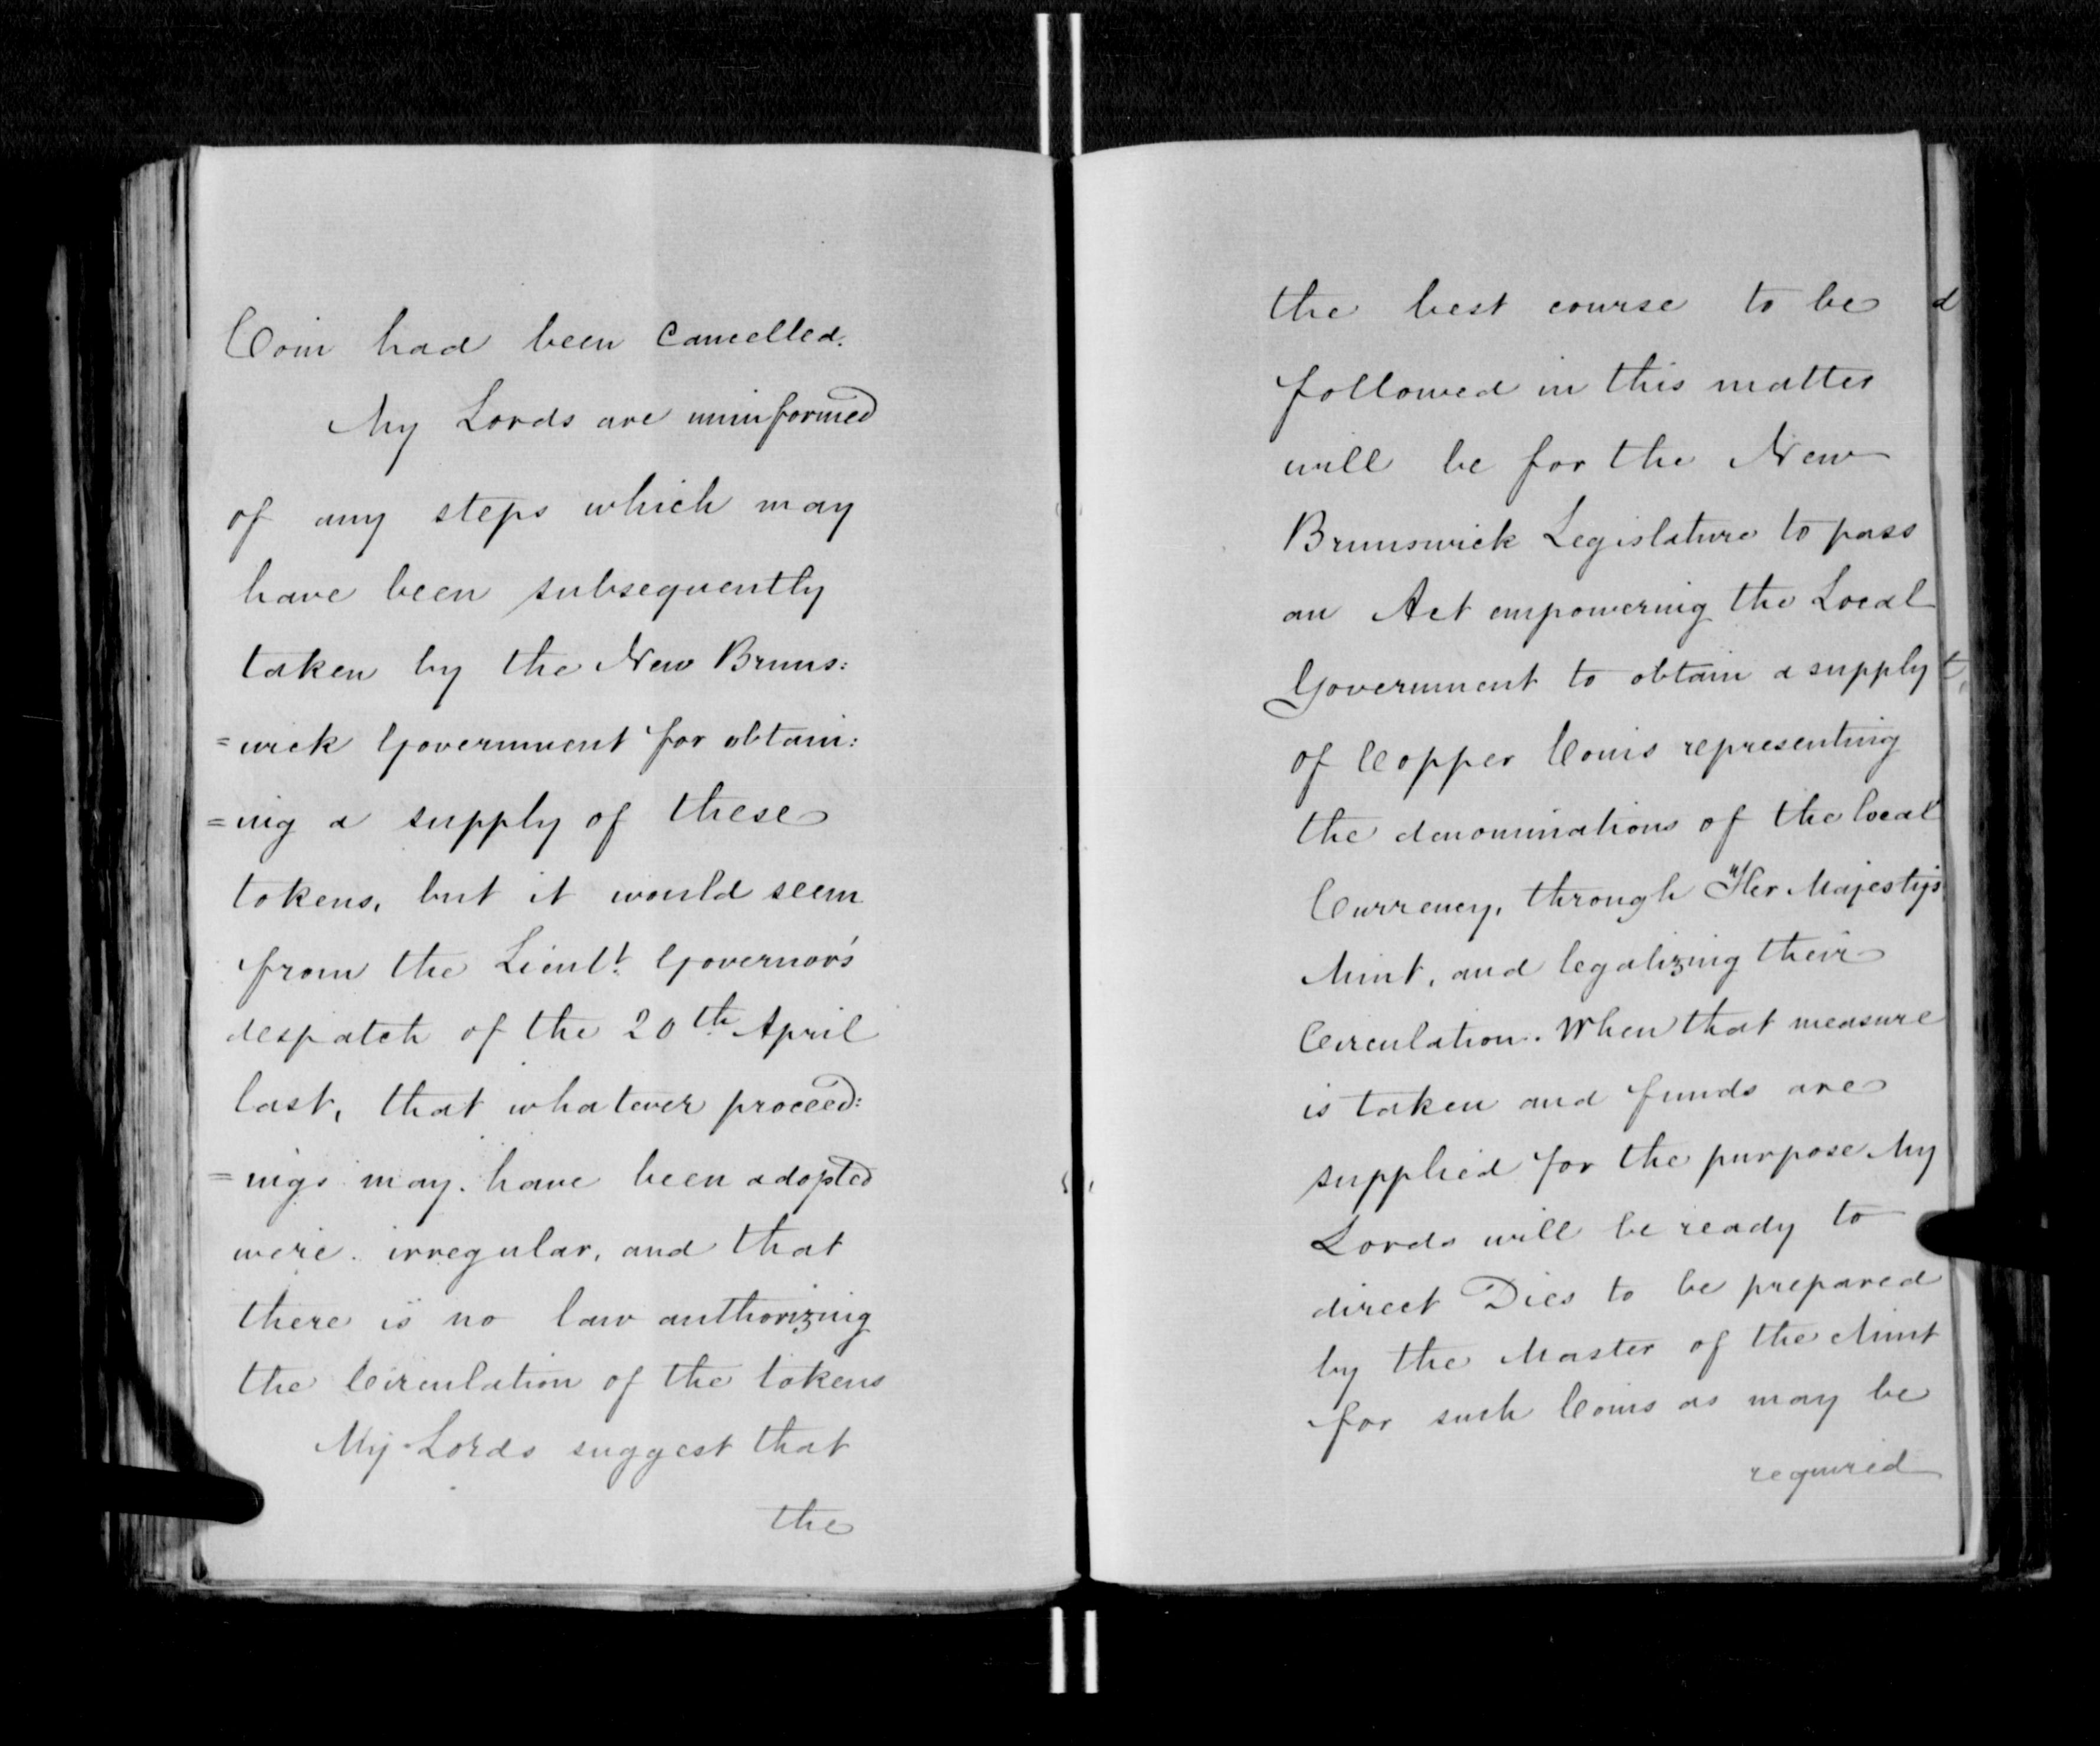 Coin had been Cancelled.
My Lords are uninformed
of any steps which may
have been subsequently
taken by the New Bruns:
=wick Government for obtain:
=ing a supply of these
tokens, but it would seem
from the Lieut.t Governor's
despatch of the 20th April
last, that whatever proceed:
=ings may have been adopted
were irregular, and that
there is no law authorizing
the Circulation of the tokens
My Lords suggest that
the
the best course to be
followed in this matter
will be for the New
Brunswick Legislature to pass
an Act empowering the Local
Government to obtain a supply
of Copper Coins representing
the denominations of the local
Currency, through Her Majesty's
Mint, and legalizing their
Circulation. When that measure
is taken and funds are
supplied for the purpose My
Lords will be ready to
direct Dies to be prepared
by the Master of the Mint
for such Coins as may be
required